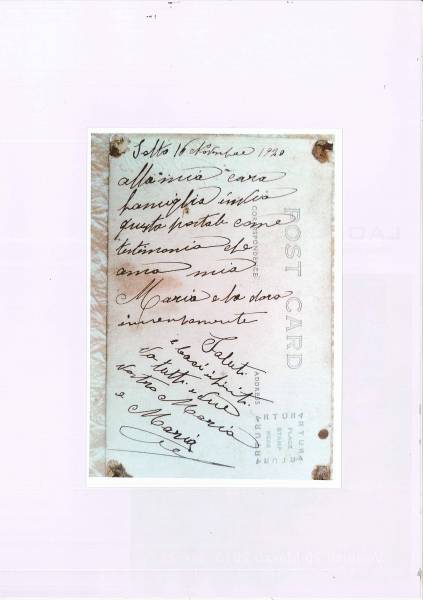 Salto 16 Novembre 1920
alla mia cara
famiglia invia
questa postale come
testimonia che
ama mia
Maria e la dora
immensamente
Saluti
e baci infiniti
da tutti e due
vostro Mario
e Maria
POST CARD
CORRESPONDENCE
ADDRESS
ARTURA
PLACE
STAMP
HERE
ARTURA
ARTURA
ARTURA